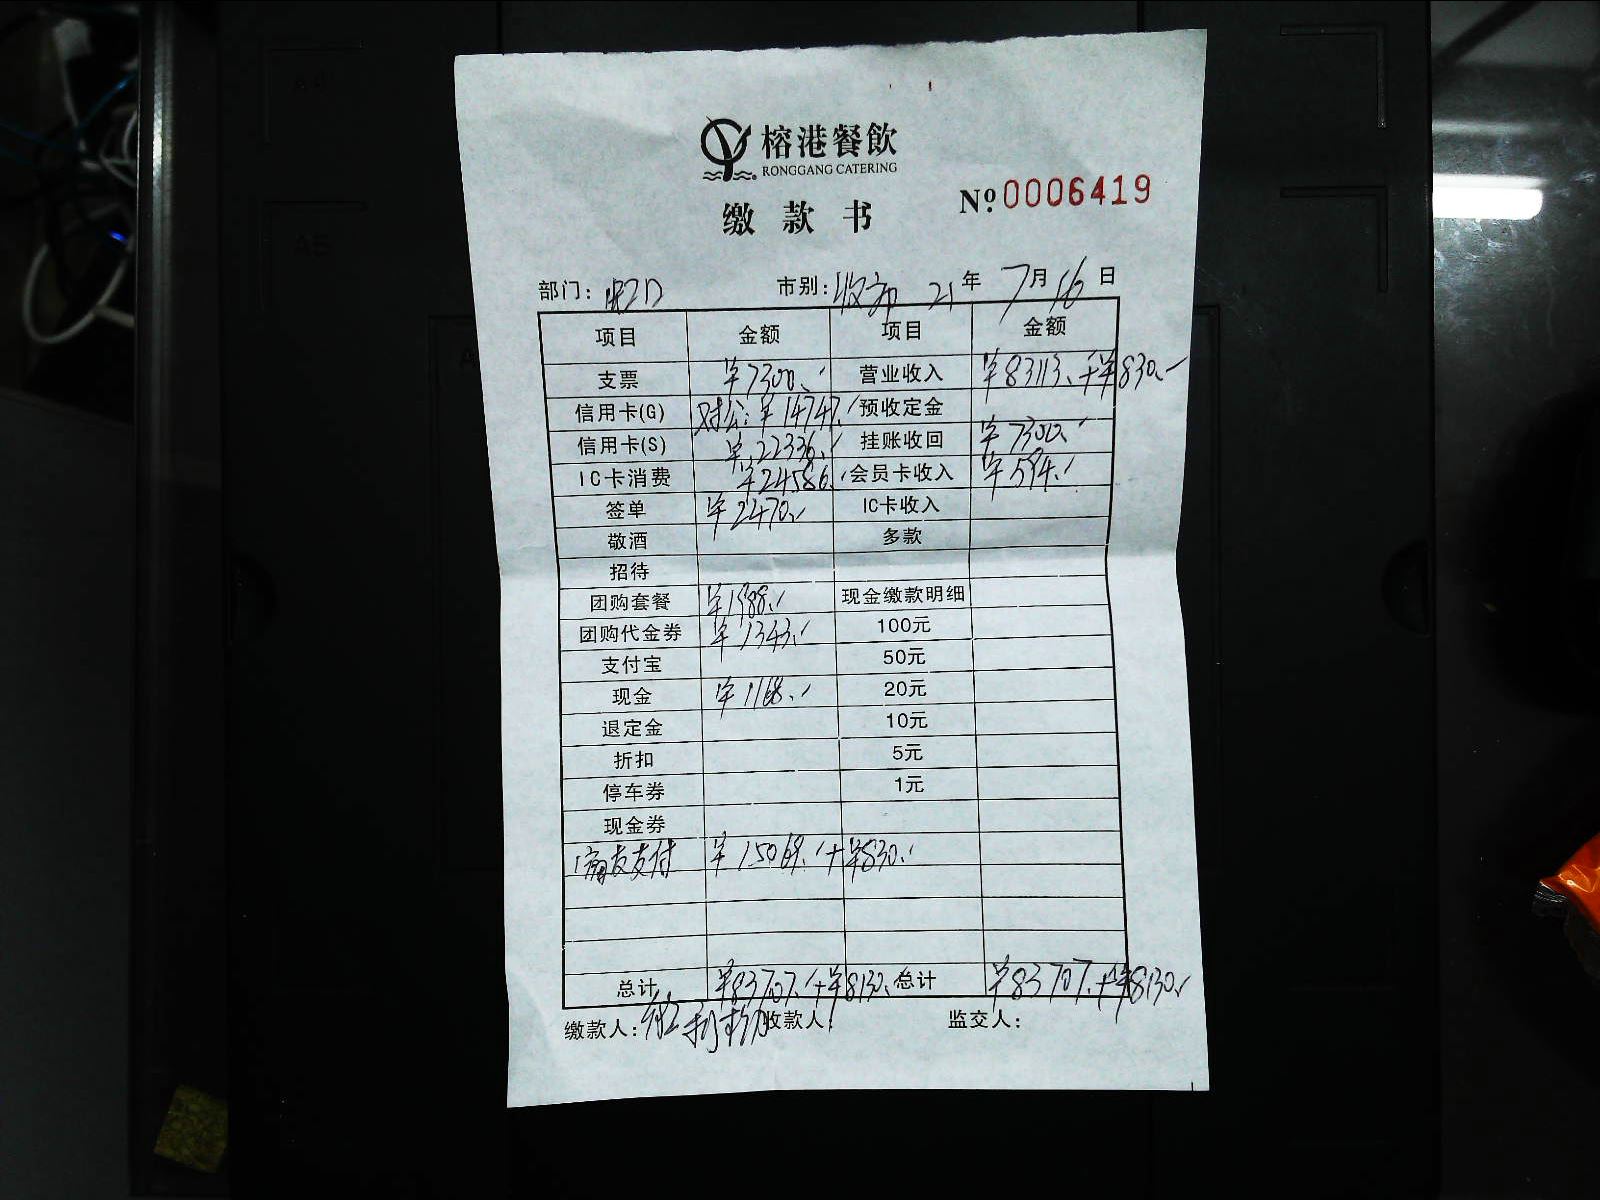 榕港餐飲
RONGGANG CATERING
缴款书 №.0006419
部门: 市别: 21年7月16日
项目 金额 项目 金额
支票 ¥7300. 营业收入 ¥83113.+¥830.
信用卡(G) 对公:¥14747. 预收定金
信用卡(S) ¥22336. 挂账收回 ¥7300.
IC卡消费 ¥24586. 会员卡收入 ¥594.
签单 ¥2470. IC卡收入
敬酒 多款
招待
团购套餐 现金缴款明细
团购代金券 ¥1343. 100元
支付宝 50元
现金 ¥1168. 20元
退定金 10元
折扣 5元
停车券 1元
现金券
支付 ¥15069.+¥830.
总计 ¥83707.+¥8130. 总计 ¥83707.+¥8130.
缴款人: 收款人: 监交人: